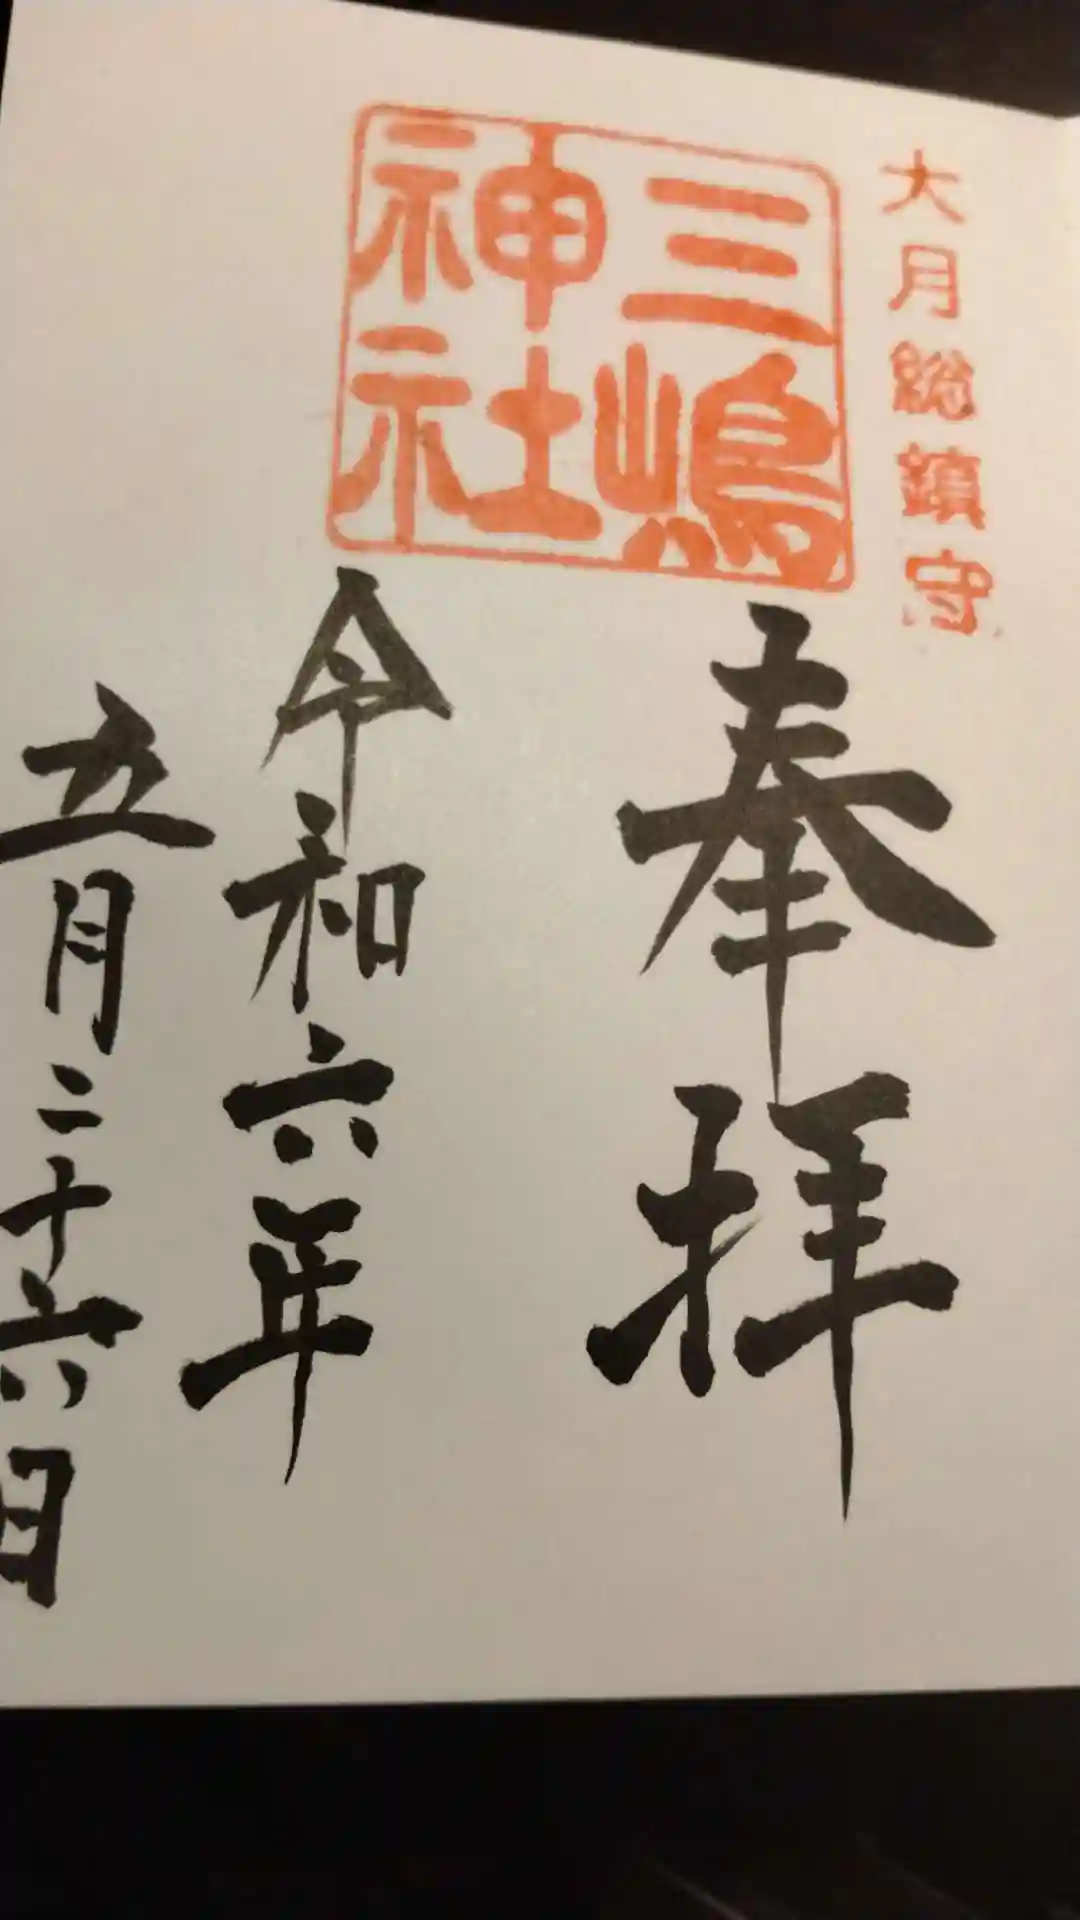 大月総鎮守
三嶋
神社
奉拝
令和六年
五月二十六日